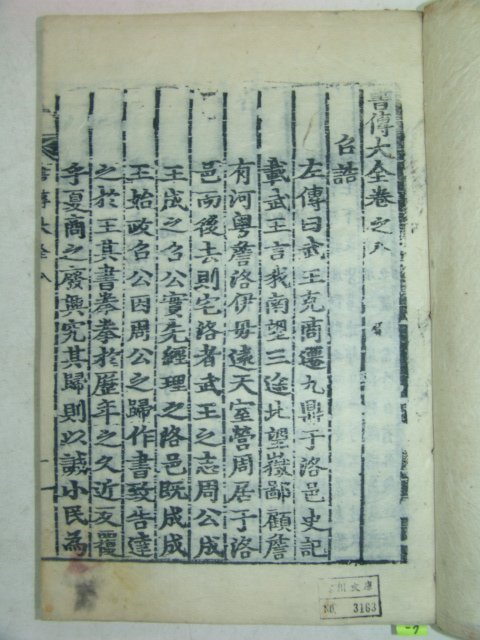 書傳大全卷之八
召誥
左傳曰武王克商遷九鼎于洛邑史記
載武王言我南望三途北望嶽鄙顧詹
有河粤詹洛伊毋遠天室營周居于洛
邑而後去則宅洛者武王之志周公成
王成之召公實先經理之洛邑既成成
王始政召公因周公之歸作書致告達
之於王其書拳拳於歷年之久近反覆
乎夏商之廢興究其歸則以諴小民為
書傳大全八
一
文庫
NO. 3163
-7